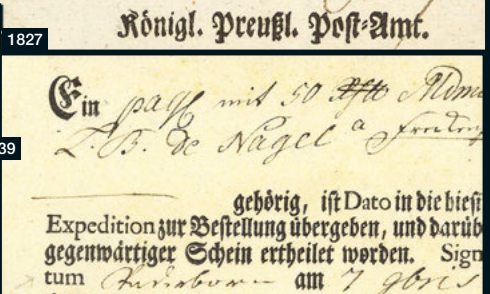 Königl. Preußl. Post-Amt.
1827
Ein pack mit 50
39
T. B. de Nagel a
gehörig, ist Dato in die hiesi
Expedition zur Bestellung übergeben, und darüb
gegenwärtiger Schein ertheilet worden. Sign
tum Paderborn am 7 gbris